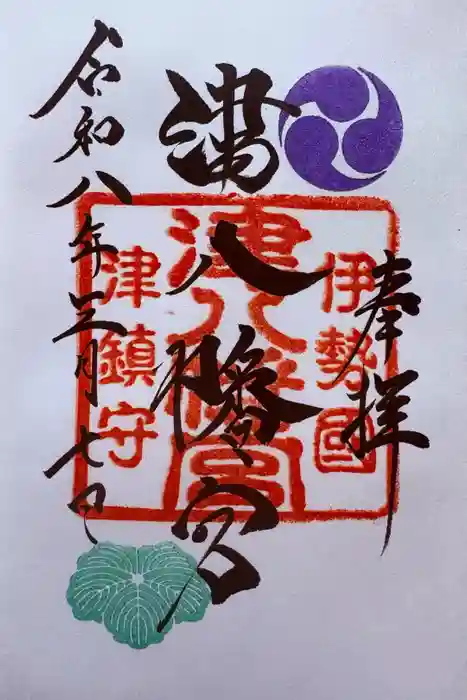 奉拝
伊勢國
津八幡宮
津八幡宮
津鎮守
令和八年三月七日